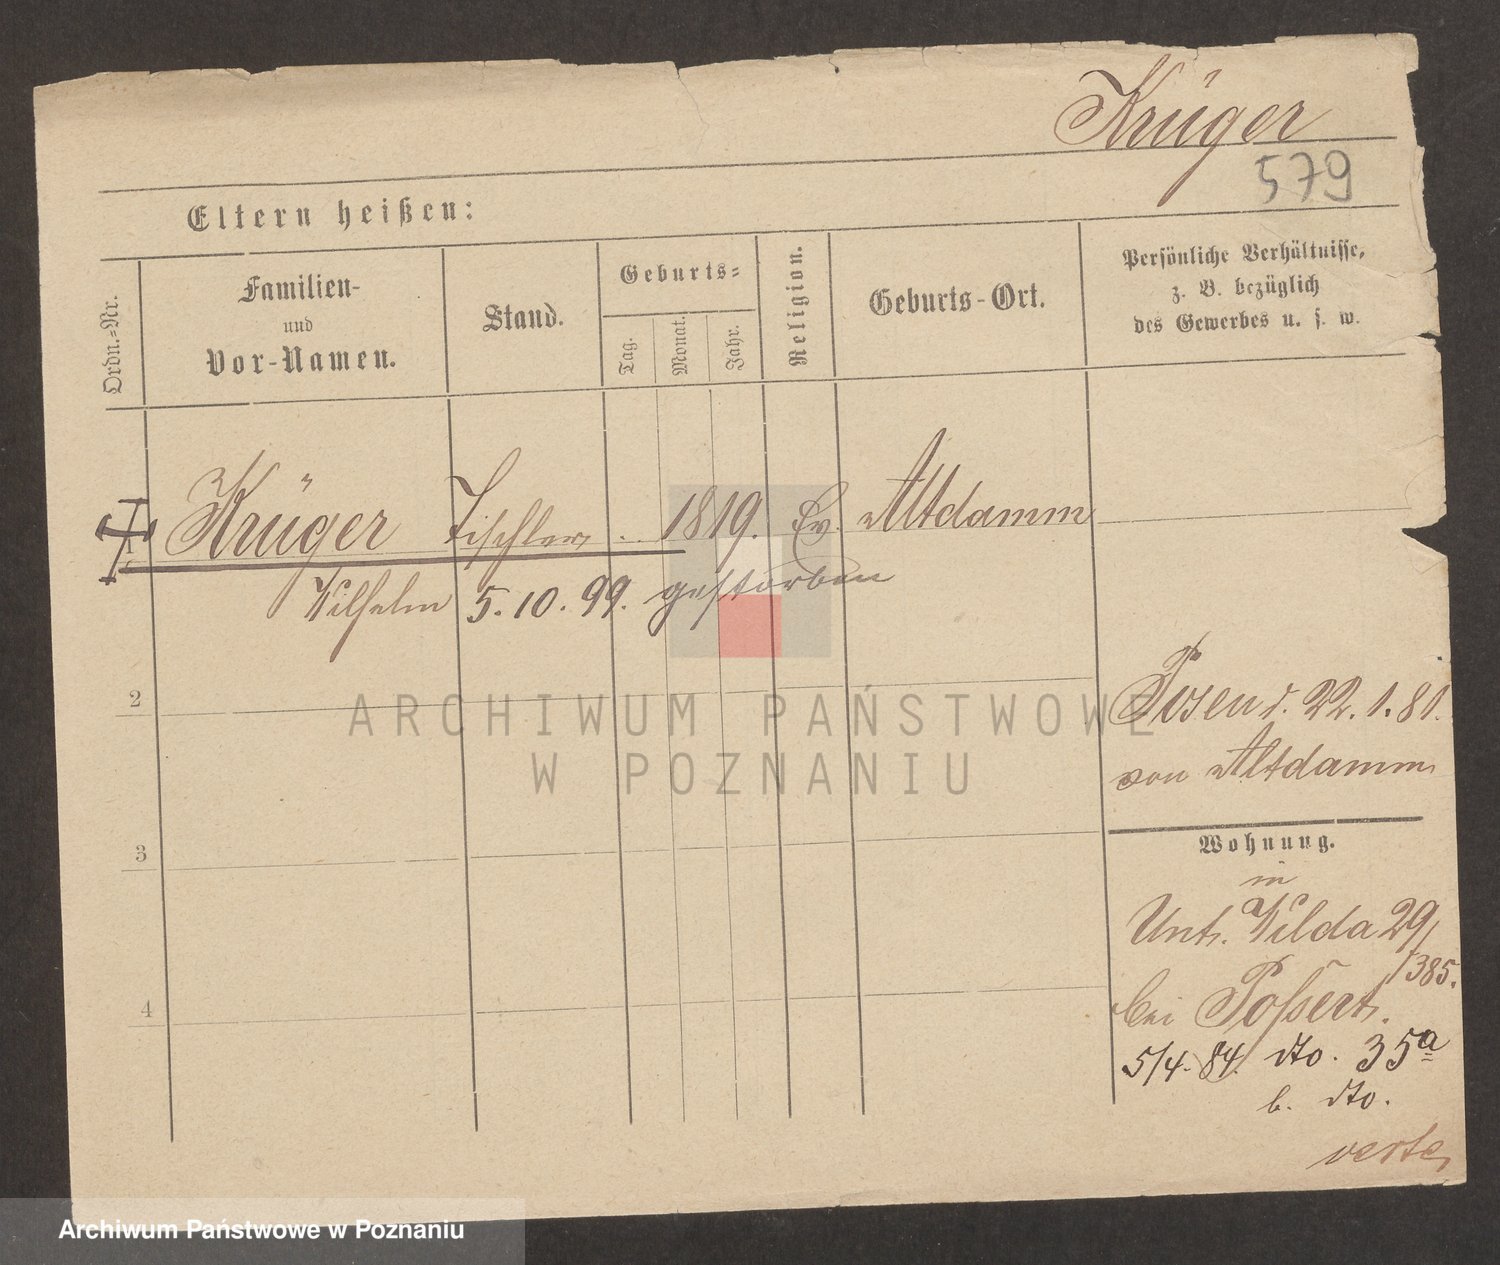 Krüger
579
Eltern heißen:
Ordn.-Nr.
Familien-
und
Vor-Namen.
Stand.
Geburts-
Tag.
Monat.
Jahr.
Religion.
Geburts-Ort.
Persönliche Verhältnisse,
z. B. bezüglich
des Gewerbes u. s. w.
1 Krüger Tischler 1819. Ev. Altdamm
Wilhelm 5.10.99. gestorben
2
Posen d. 22.1.81.
von Altdamm
3
Wohnung.
in
Unt. Wilda 29/
385.
bei Possert.
4
5/4. 84. dto. 35a
b. dto.
verte
ARCHIWUM PAŃSTWOWE
W POZNANIU
Archiwum Państwowe w Poznaniu